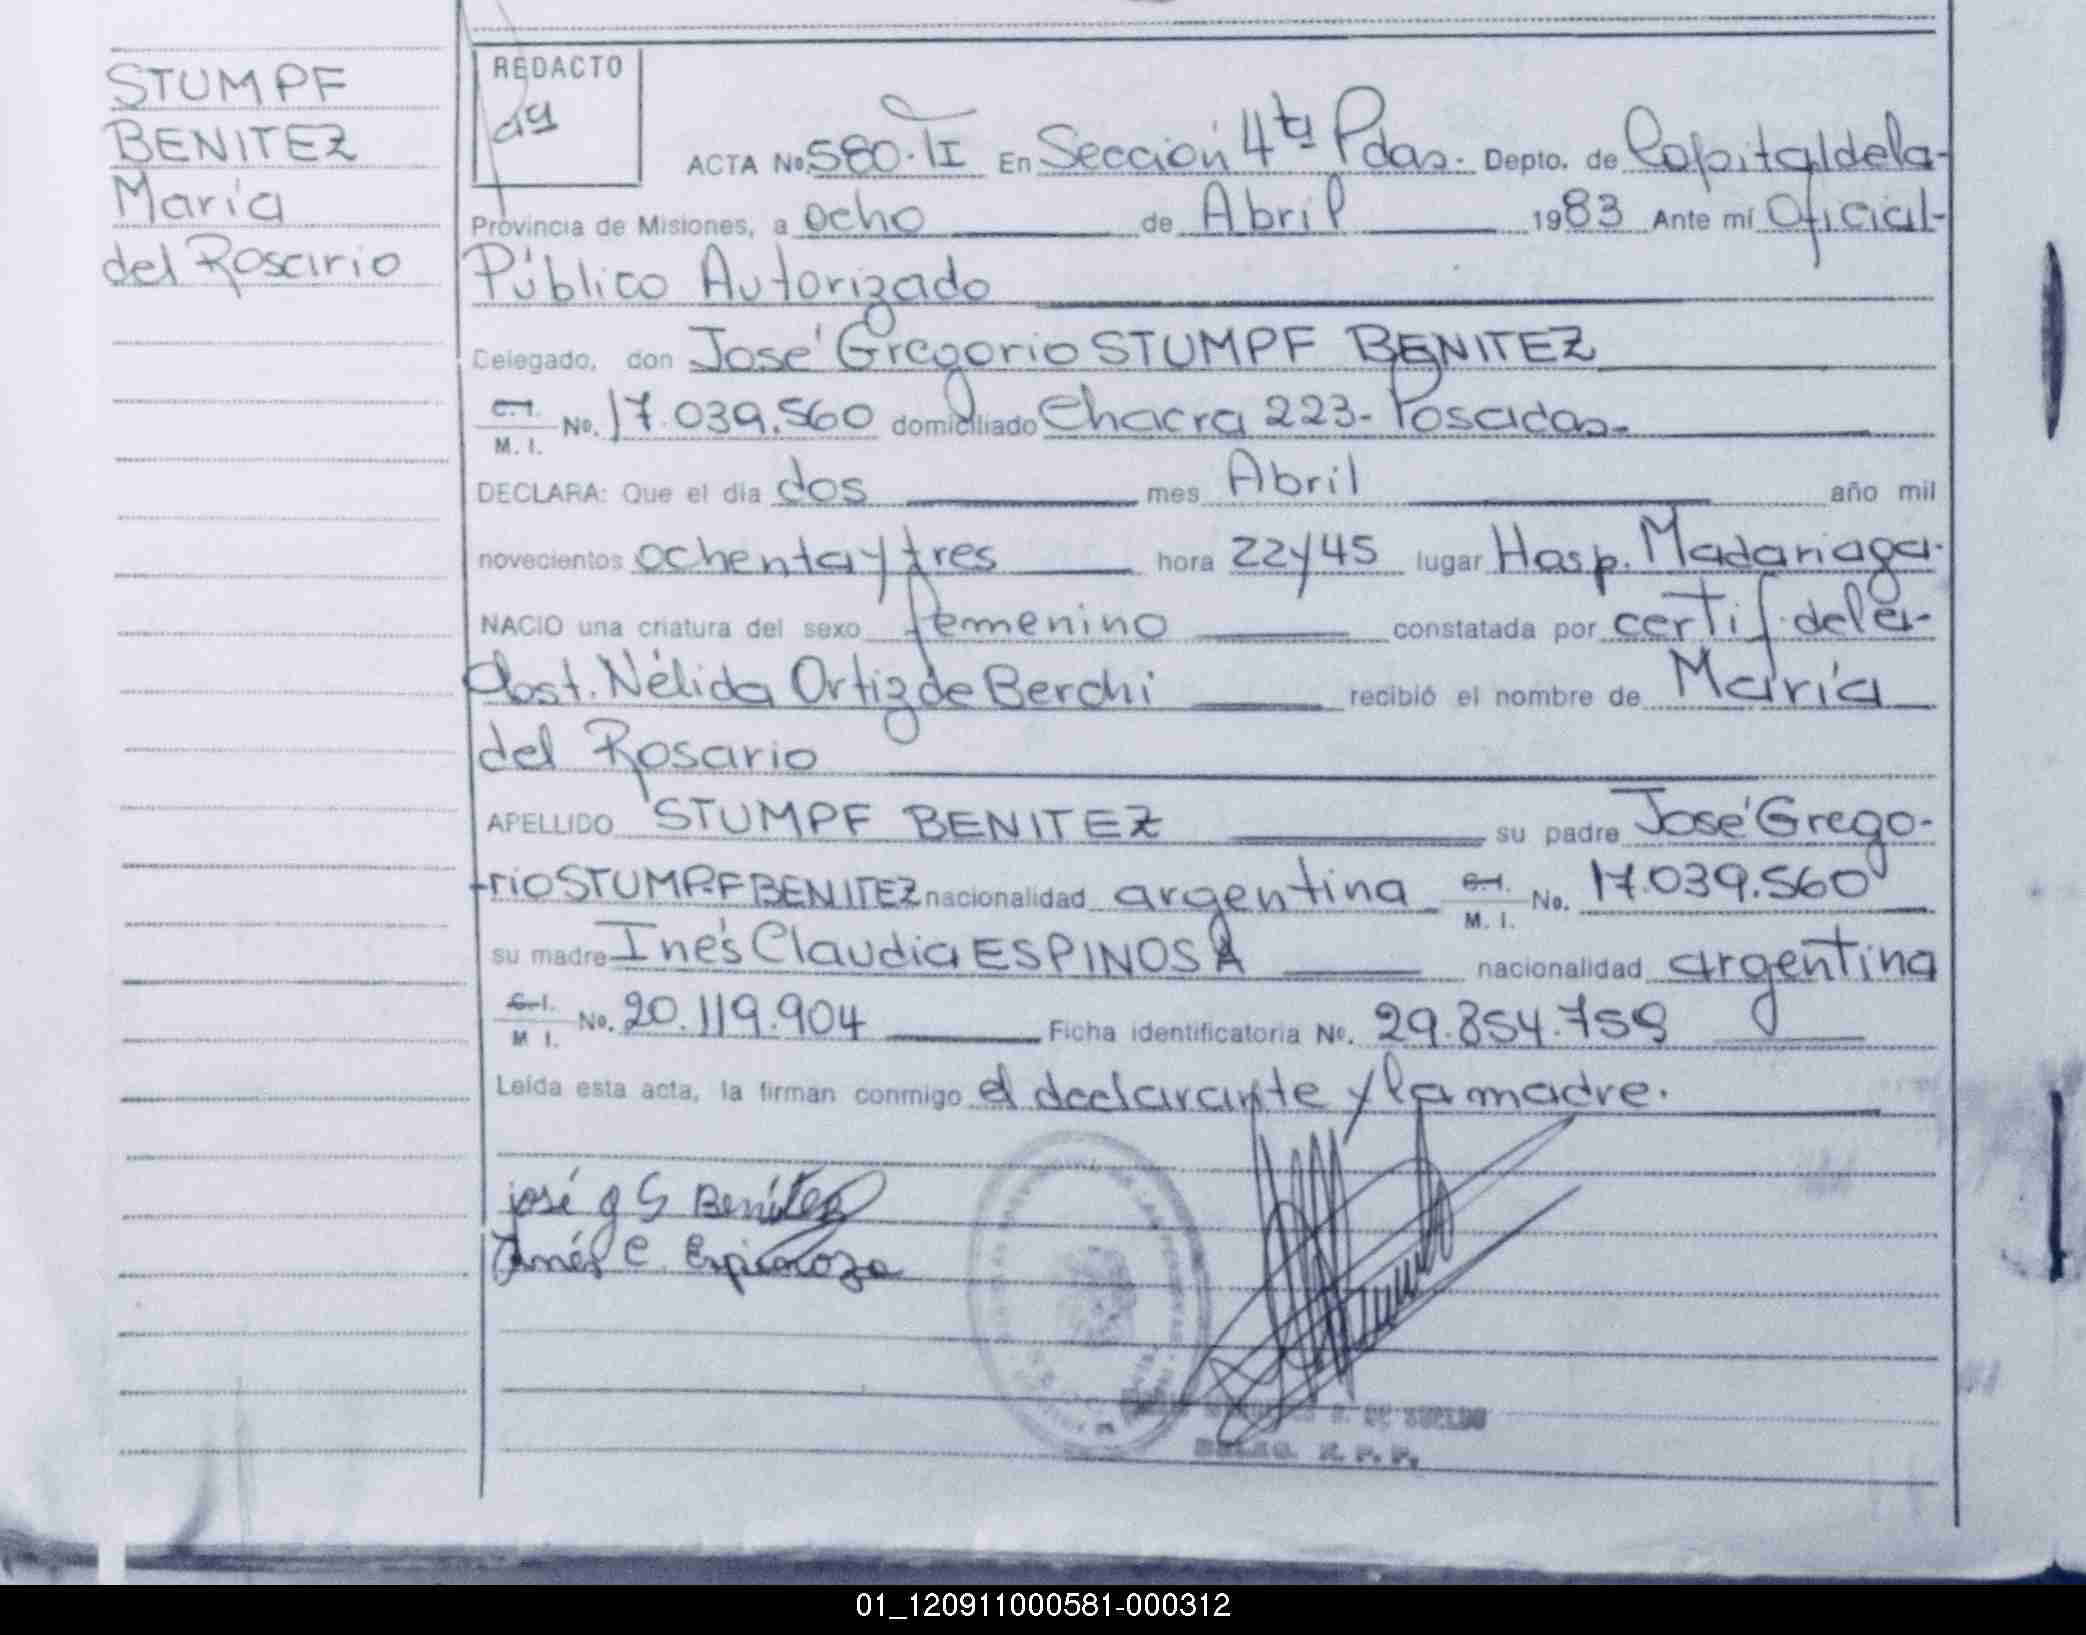 STUMPF
BENITEZ
María
del Rosario
REDACTO
ACTA No. 580. TI En Sección 4ta Pdas. Depto. de Capital de la-
Provincia de Misiones, a ocho de Abril 1983 Ante mí Oficial-
Público Autorizado
Delegado, don José Gregorio STUMPF BENITEZ
C. I. M. I. No. 17.039.560 domiciliado Chacra 223- Posadas.
DECLARA: Que el día dos mes Abril año mil
novecientos ochenta y tres hora 22y45 lugar Hosp. Madariaga.
NACIO una criatura del sexo femenino constatada por certif. de la-
Obst. Nélida Ortiz de Berchi recibió el nombre de María
del Rosario
APELLIDO STUMPF BENITEZ su padre José Grego-
rio STUMPF BENITEZ nacionalidad argentina C. I. M. I. No. 17.039.560
su madre Inés Claudia ESPINOSA nacionalidad argentina
C. I. M. I. No. 20.119.904 Ficha identificatoria No. 29.854.759
Leída esta acta, la firman conmigo el declarante y la madre.
josé g S Benítez
Inés C. Espinoza
DE SUELDO
DELEG. R. P. P.
01_120911000581-000312